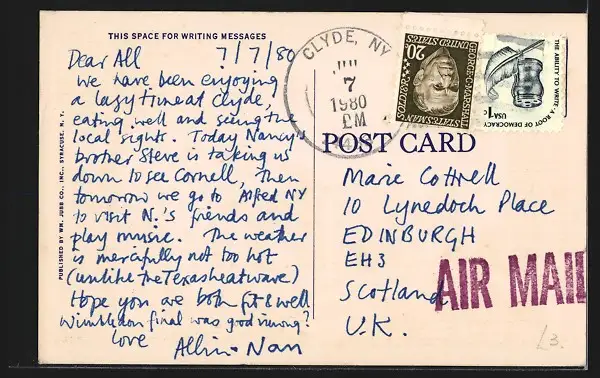 THIS SPACE FOR WRITING MESSAGES
Dear All 7/7/80
We have been enjoying
a lazy time at Clyde,
eating well and seeing the
local sights. Today Nancy's
brother Steve is taking us
down to see Cornell, then
tomorrow we go to Alfred NY
to visit N.'s friends and
play music. The weather
is mercifully not too hot
(unlike the Texas heatwave)
Hope you are both fit & well
Wimbledon final was good viewing?
Love
Allin + Nan
PUBLISHED BY WM. JUBB CO., INC., SYRACUSE, N. Y.
CLYDE, NY
7
1980
PM
GEORGE C. MARSHALL
UNITED STATES
20c
STATESMAN
SOLDIER
THE ABILITY TO WRITE · A ROOT OF DEMOCRACY
USA 1c
POST CARD
Marie Cottrell
10 Lynedoch Place
EDINBURGH
EH3
Scotland
U.K.
AIR MAIL
£3.